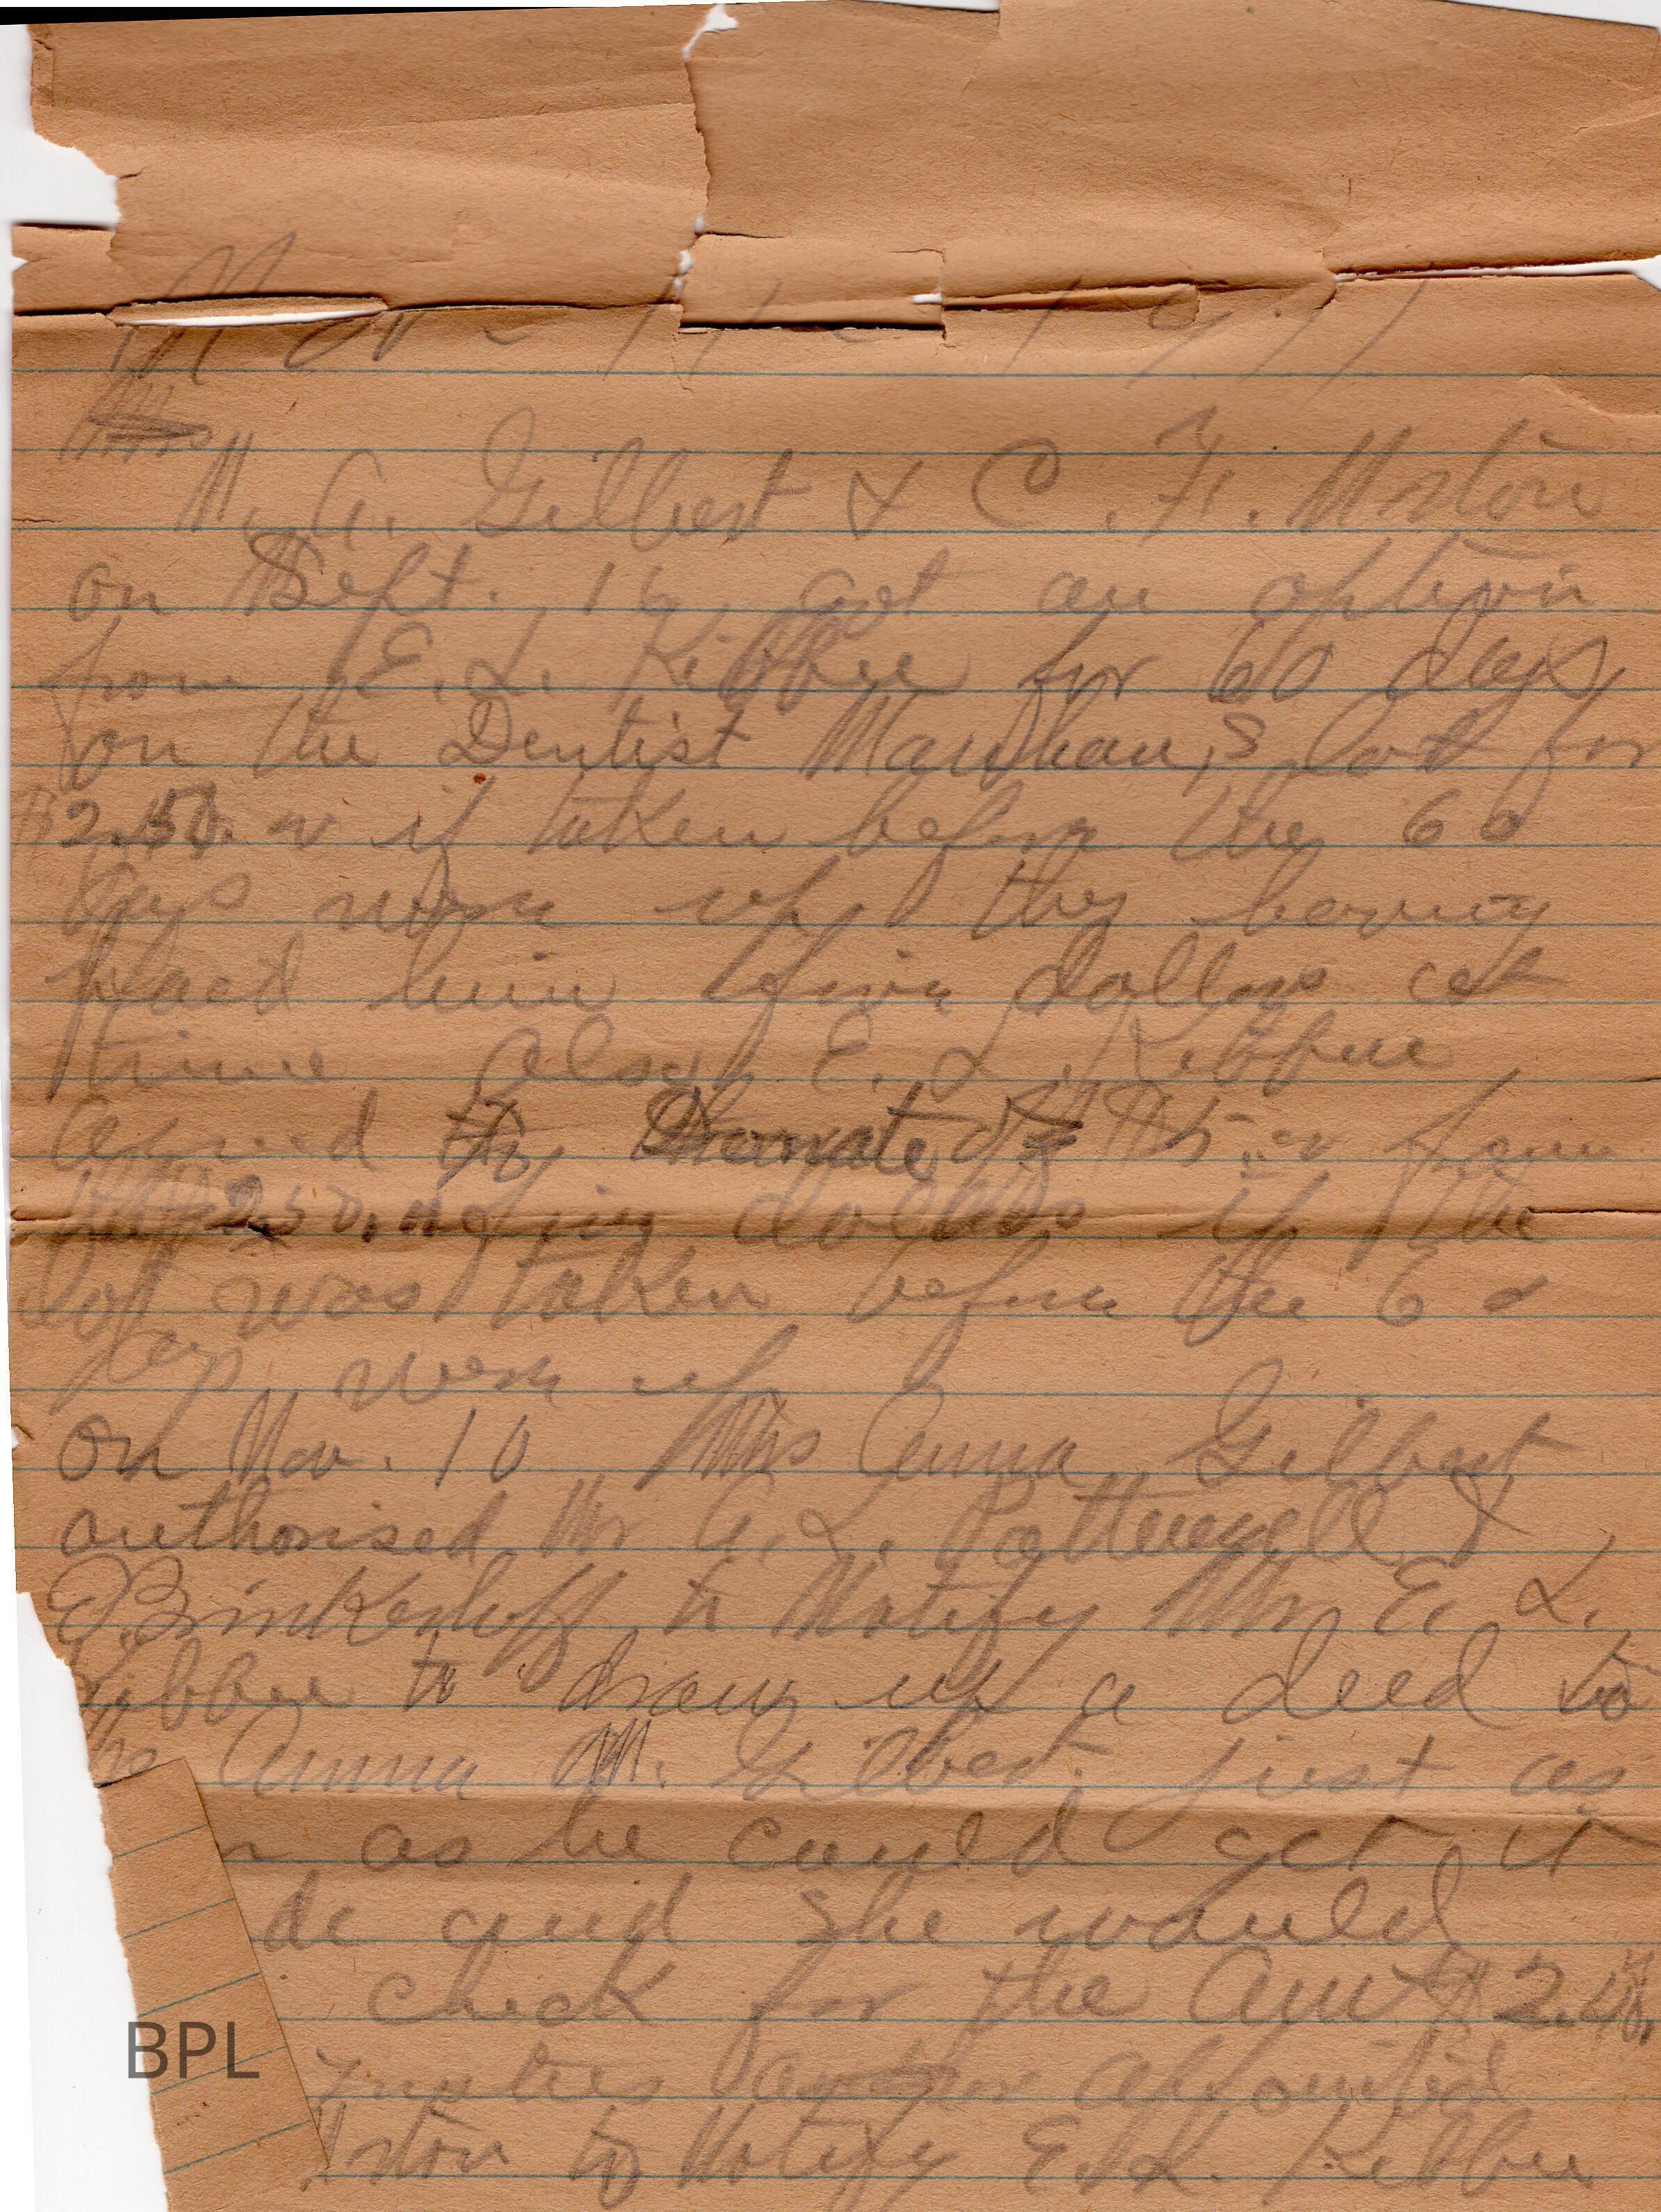 Nov - 14 - 19
A. Gilbert & C. F. Urston
on Sept. 16, got an option
from E. L. Kibbee for 60 days
on the Dentist Lot for
if taken before the 60
days were up they having
him five dollars at
time Also E. L. Kibbee
agreed to Donate from
250. dollars if the
Lot was taken before the 60
days were up
On Nov. 10 Mrs Anna Gilbert
authorised Mr A. L. &
E. Brinkerhoff to Notify Mr E. L.
ibbee to draw up a deed to
Anna M. Gilbert just as
n as he could get it
de and she would
check for the Amt
ton to Notify E. L. Kibbee
BPL